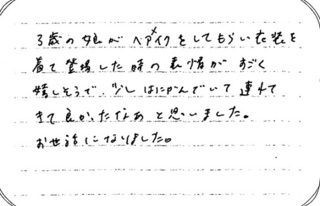 3歳の娘がヘアメイクをしてもらい衣装を
着て登場した時の表情がすごく
嬉しそうで、少しはにかんでいて連れて
きて良かったなあと思いました。
お世話になりました。